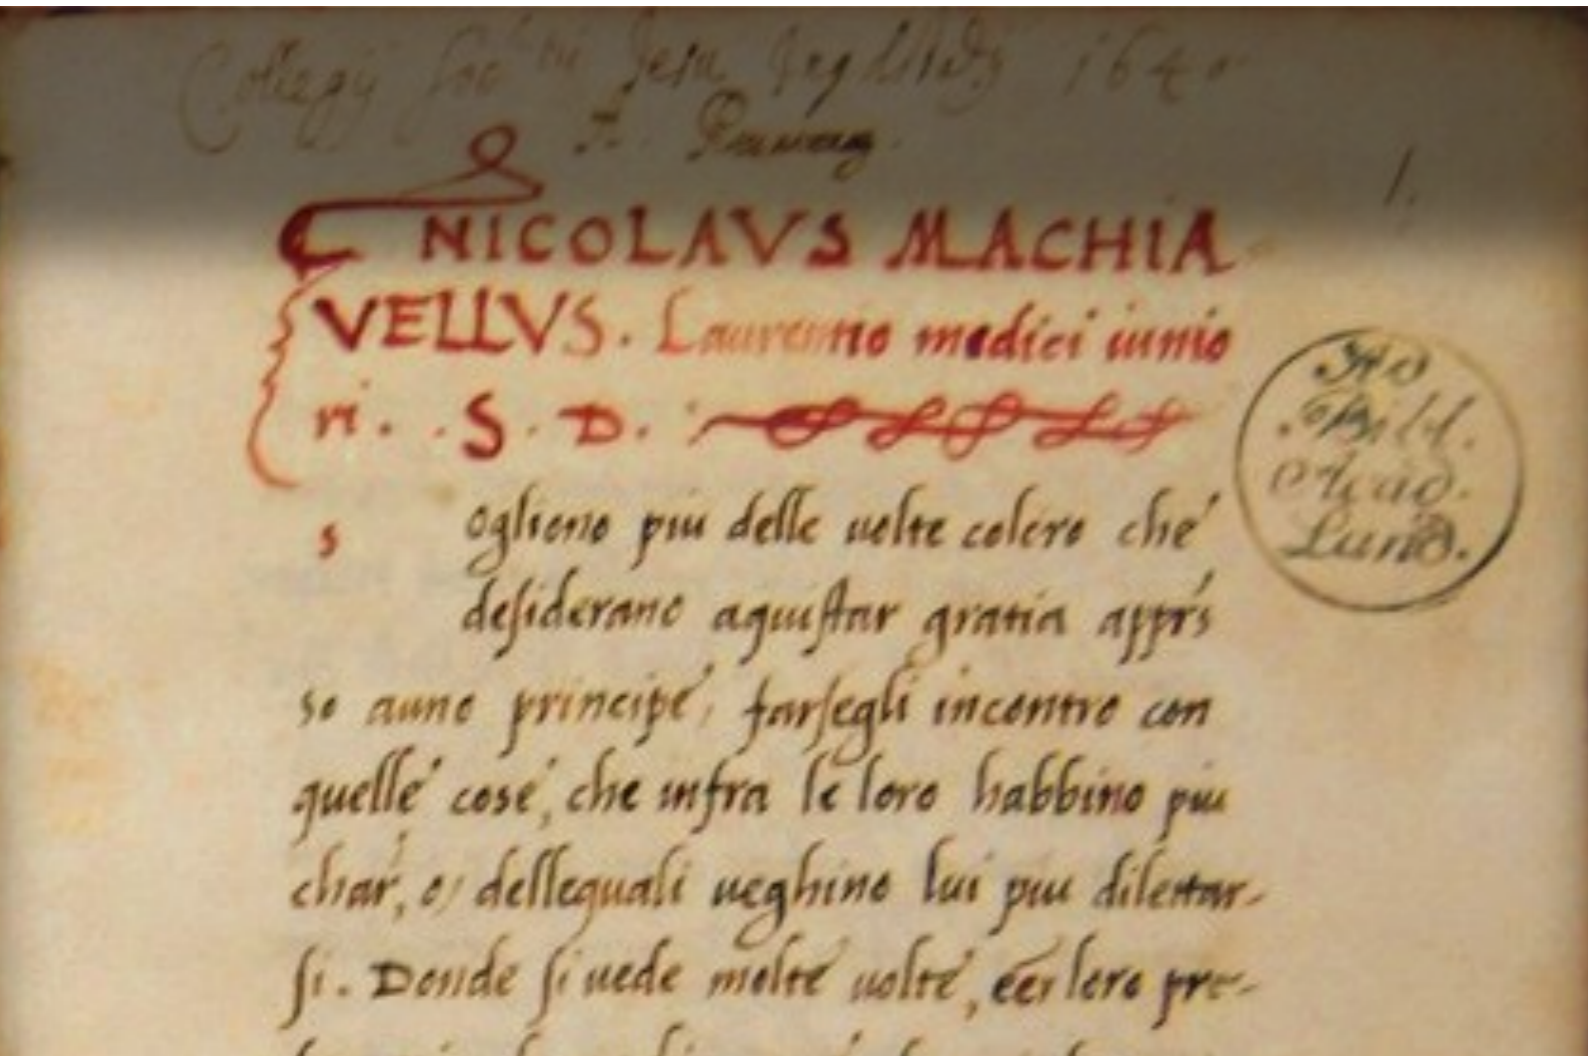 Collegij Soc.tis Jesu Ingolstadij 1640
A.
1.
NICOLAVS MACHIA
VELLVS. Laurentio medici iunio
ri. . S. D.
Bibl.
Acad.
Land.
s
ogliono piu delle uolte coloro che
desiderano aquistar gratia apprs
so auno principe, farsegli incontro con
quelle cose, che infra le loro habbino piu
char, o, dellequali ueghino lui piu dilettar-
si. Donde si uede molte uolte, eer loro pre-